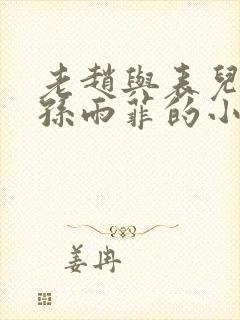 老趙與表兒
孫雨菲的小
姜冉